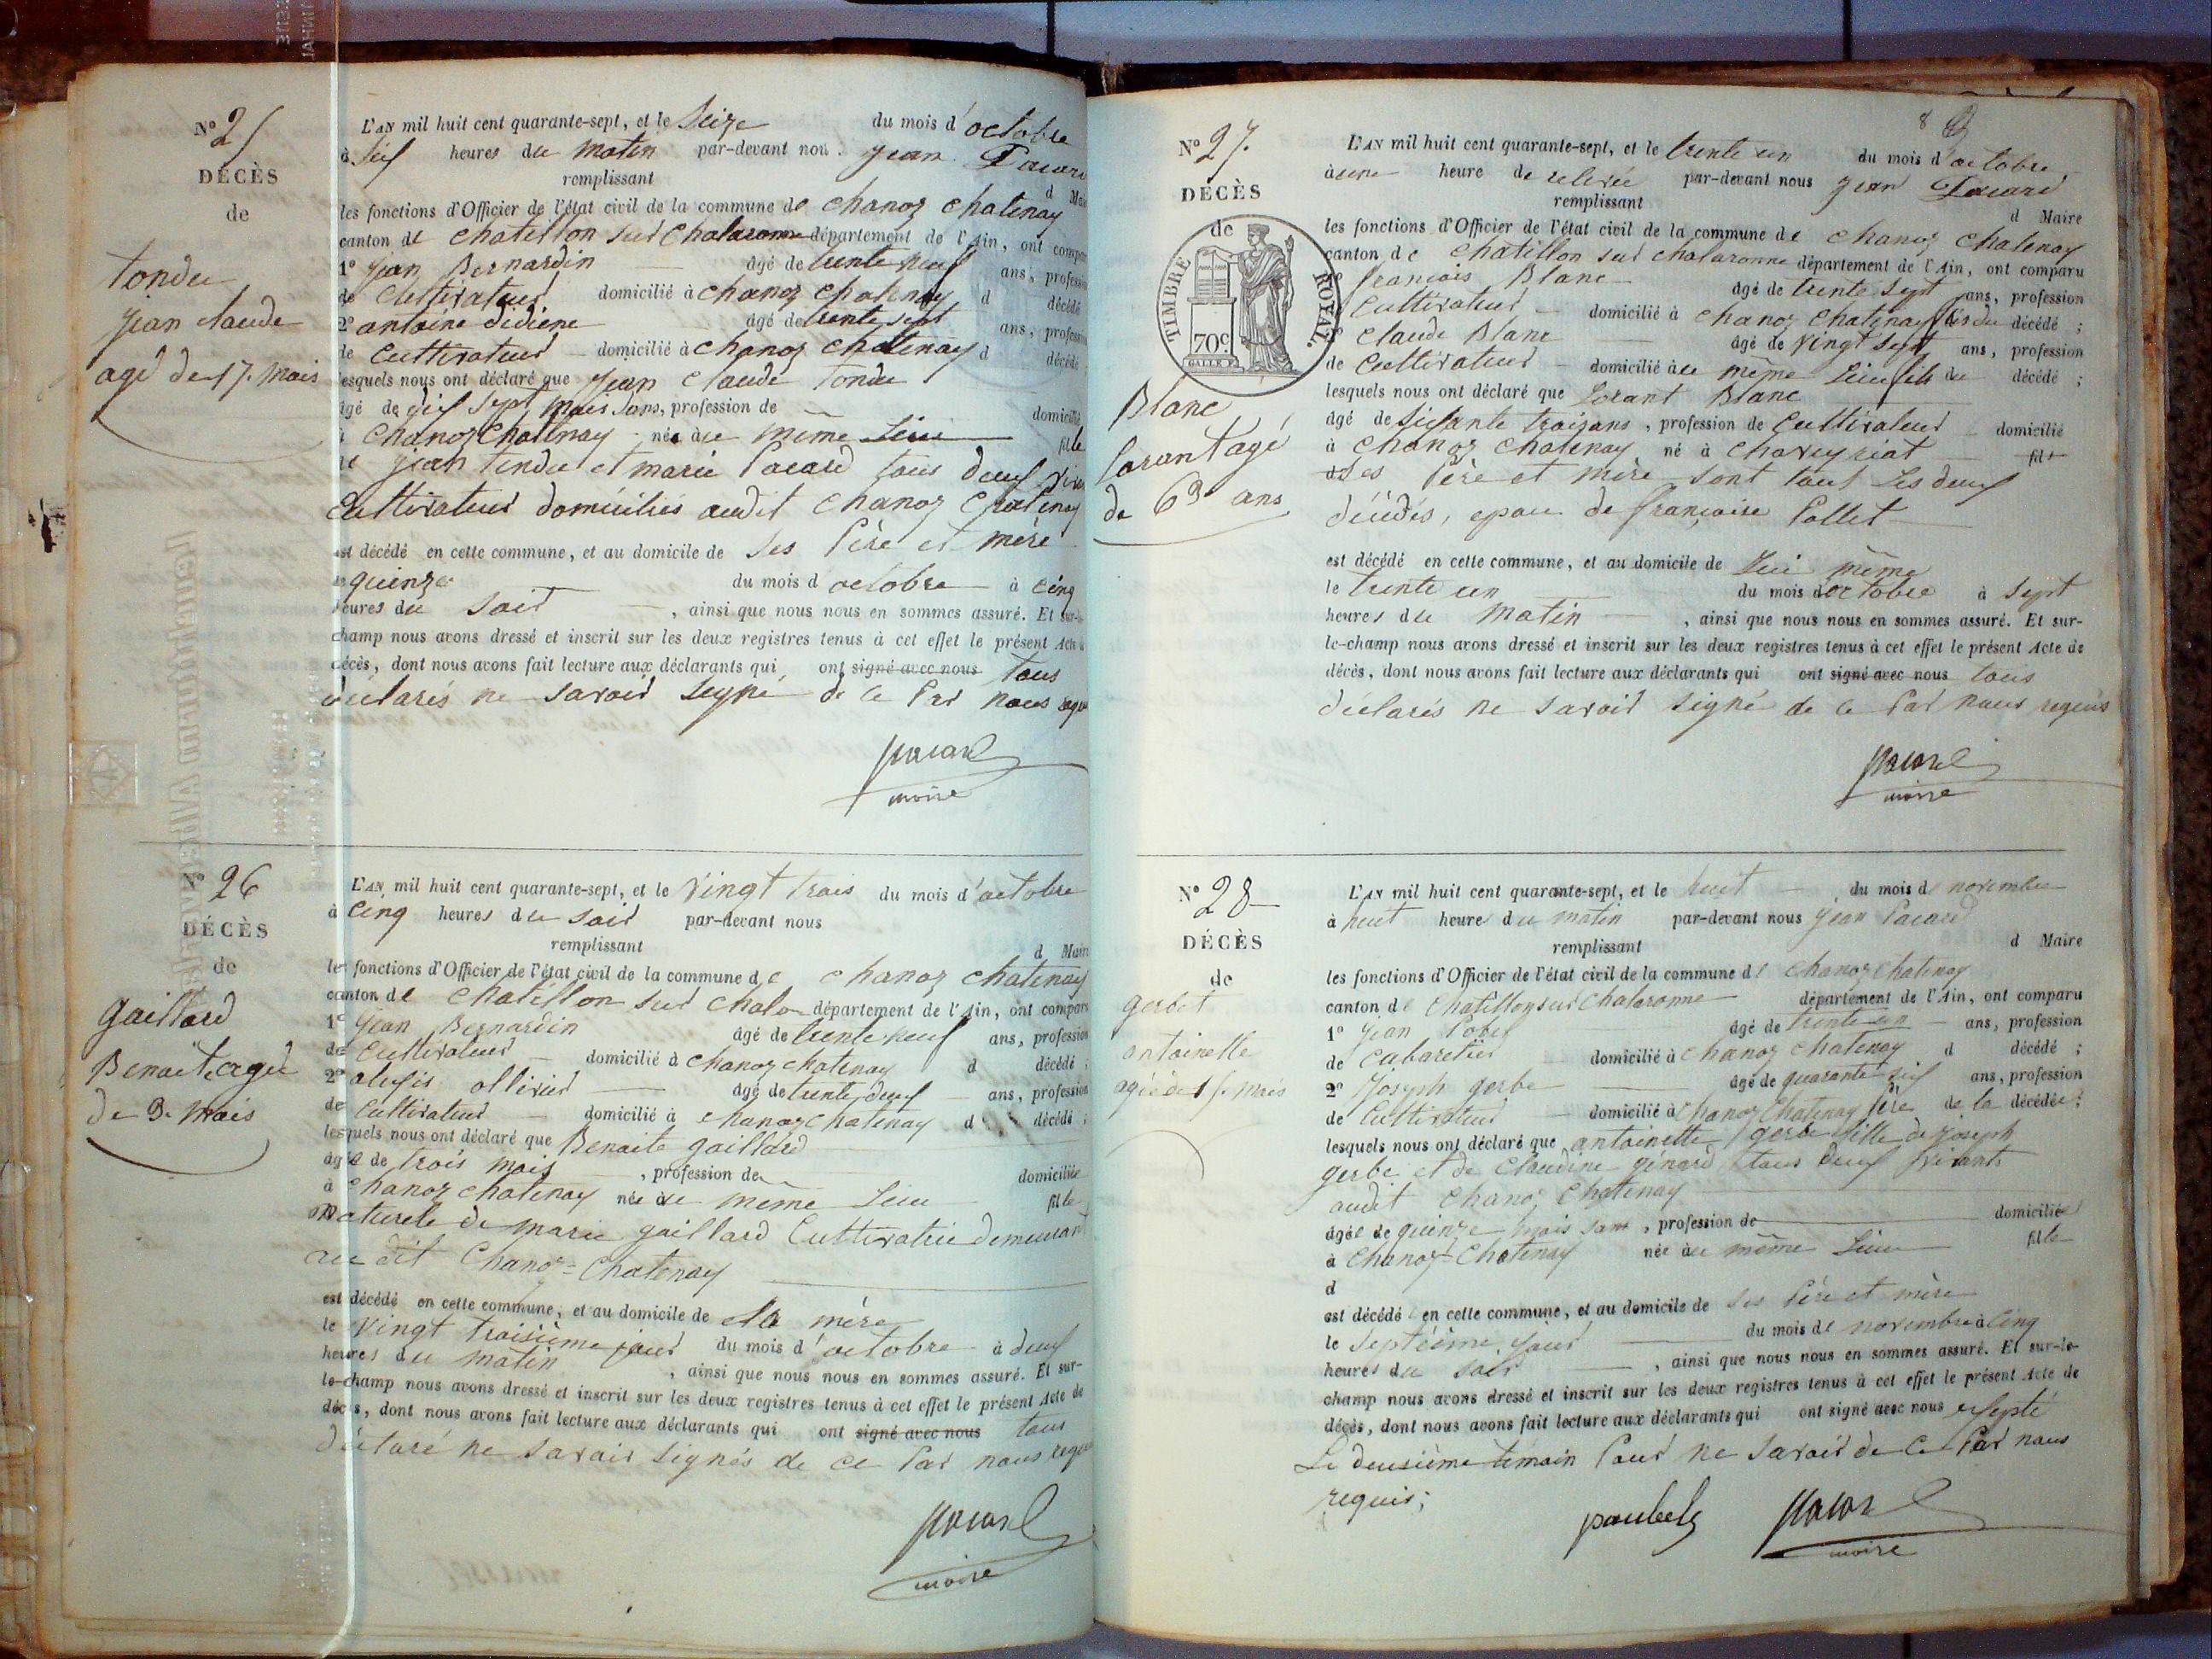 N° 25
DÉCÈS
de
tondu
jean claude
agé de 17. mois
L'AN mil huit cent quarante-sept, et le Seize du mois d'octobre
à Six heures du matin par-devant nous jean Pacard
remplissant d Maire
les fonctions d'Officier de l'état civil de la commune de chanoz chatenay
canton de chatillon sur chalaronne département de l'Ain, ont comparu
1° jean Bernardin âgé de trente neuf ans, profession
de cultivateur domicilié à chanoz chatenay d décédé
2° antoine âgé de trente sept ans, profession
de cultivateur domicilié à chanoz chatenay d décédé
lesquels nous ont déclaré que jean claude tondu
âgé de dix sept mois sans, profession de domicilié
à chanoz chatenay né au même Lieu fils
de jean tondu et marie Pacard tous deux
cultivateurs domiciliés audit chanoz chatenay
est décédé en cette commune, et au domicile de ses Père et mère
le quinze du mois d octobre à cinq
heures du soir, ainsi que nous nous en sommes assuré. Et sur-le-
champ nous avons dressé et inscrit sur les deux registres tenus à cet effet le présent Acte de
décès, dont nous avons fait lecture aux déclarants qui ont signé avec nous tous
déclarés ne savoir signé de ce Par nous requis
Pacard
maire
N° 26
DÉCÈS
de
gaillard
Benoite agée
de 3. mois
L'AN mil huit cent quarante-sept, et le vingt trois du mois d'octobre
à cinq heures du soir par-devant nous
remplissant d Maire
les fonctions d'Officier de l'état civil de la commune de chanoz chatenay
canton de chatillon sur chala département de l'Ain, ont comparu
1° jean Bernardin âgé de trente neuf ans, profession
de cultivateur domicilié à chanoz chatenay d décédé ;
2° alexis ollivier âgé de trente deux ans, profession
de cultivateur domicilié à chanoz chatenay d décédé ;
lesquels nous ont déclaré que Benoite gaillard
âgée de trois mois, profession de domiciliée
à chanoz chatenay née au meme Lieu fille
naturele de marie gaillard cultivatrice demeurant
au dit Chanoz-Chatenay
est décédé en cette commune, et au domicile de sa mère
le vingt troisième jour du mois d'octobre à deux
heures du matin, ainsi que nous nous en sommes assuré. Et sur-
le-champ nous avons dressé et inscrit sur les deux registres tenus à cet effet le présent Acte de
décès, dont nous avons fait lecture aux déclarants qui ont signé avec nous tous
déclaré ne savoir signés de ce Par nous requis
Pacard
maire
8
N° 27.
DÉCÈS
de
TIMBRE ROYAL.
70c.
Blanc
lorant agé
de 63 ans
L'AN mil huit cent quarante-sept, et le trente un du mois d'octobre
à une heure de relevée par-devant nous jean Pacard
remplissant d Maire
les fonctions d'Officier de l'état civil de la commune de chanoz chatenay
canton de chatillon sur chalaronne département de l'Ain, ont comparu
françois Blanc âgé de trente sept ans, profession
cultivateur domicilié à chanoz chatenay fils du décédé ;
claude Blanc âgé de vingt sept ans, profession
de cultivateur domicilié au même Lieu fils du décédé ;
lesquels nous ont déclaré que Lorant Blanc
âgé de sixante trois ans, profession de cultivateur domicilié
à chanoz chatenay né à chaveyriat fils
de ses Père et mère sont tous Les deux
décédés, epou de françoise Pollet
est décédé en cette commune, et au domicile de lui même
le trente un du mois d'octobre à sept
heures du matin, ainsi que nous nous en sommes assuré. Et sur-
le-champ nous avons dressé et inscrit sur les deux registres tenus à cet effet le présent Acte de
décès, dont nous avons fait lecture aux déclarants qui ont signé avec nous tous
déclarés ne savoir signé de ce Par nous requis
Pacard
maire
N° 28
DÉCÈS
de
gerbet
antoinette
agée de 15. mois
L'AN mil huit cent quarante-sept, et le huit du mois de novembre
à huit heure du matin par-devant nous jean Pacard
remplissant d Maire
les fonctions d'Officier de l'état civil de la commune de chanoz chatenay
canton de chatillon sur chalaronne département de l'Ain, ont comparu
1° jean âgé de trente un ans, profession
de cabaretier domicilié à chanoz chatenay d décédé ;
2° Joseph gerbe âgé de quarante six ans, profession
de cultivateur domicilié à chanoz Chatenay Père de la décédée ;
lesquels nous ont déclaré que antoinette gerbe fille de joseph
gerbe et de Claudine génard tous deux vivants
audit chanoz chatenay
âgée de quinze mois sans, profession de domicilié
à Chanoz-Chatenay née au même Lieu fille
d
est décédé en cette commune, et au domicile de ses Père et mère
le septième jour du mois de novembre à cinq
heures du soir, ainsi que nous nous en sommes assuré. Et sur-le-
champ nous avons dressé et inscrit sur les deux registres tenus à cet effet le présent Acte de
décès, dont nous avons fait lecture aux déclarants qui ont signé avec nous exsepté
Le deuxième témoin Pour ne savoir de ce Par nous
requis ;
Pacard
maire